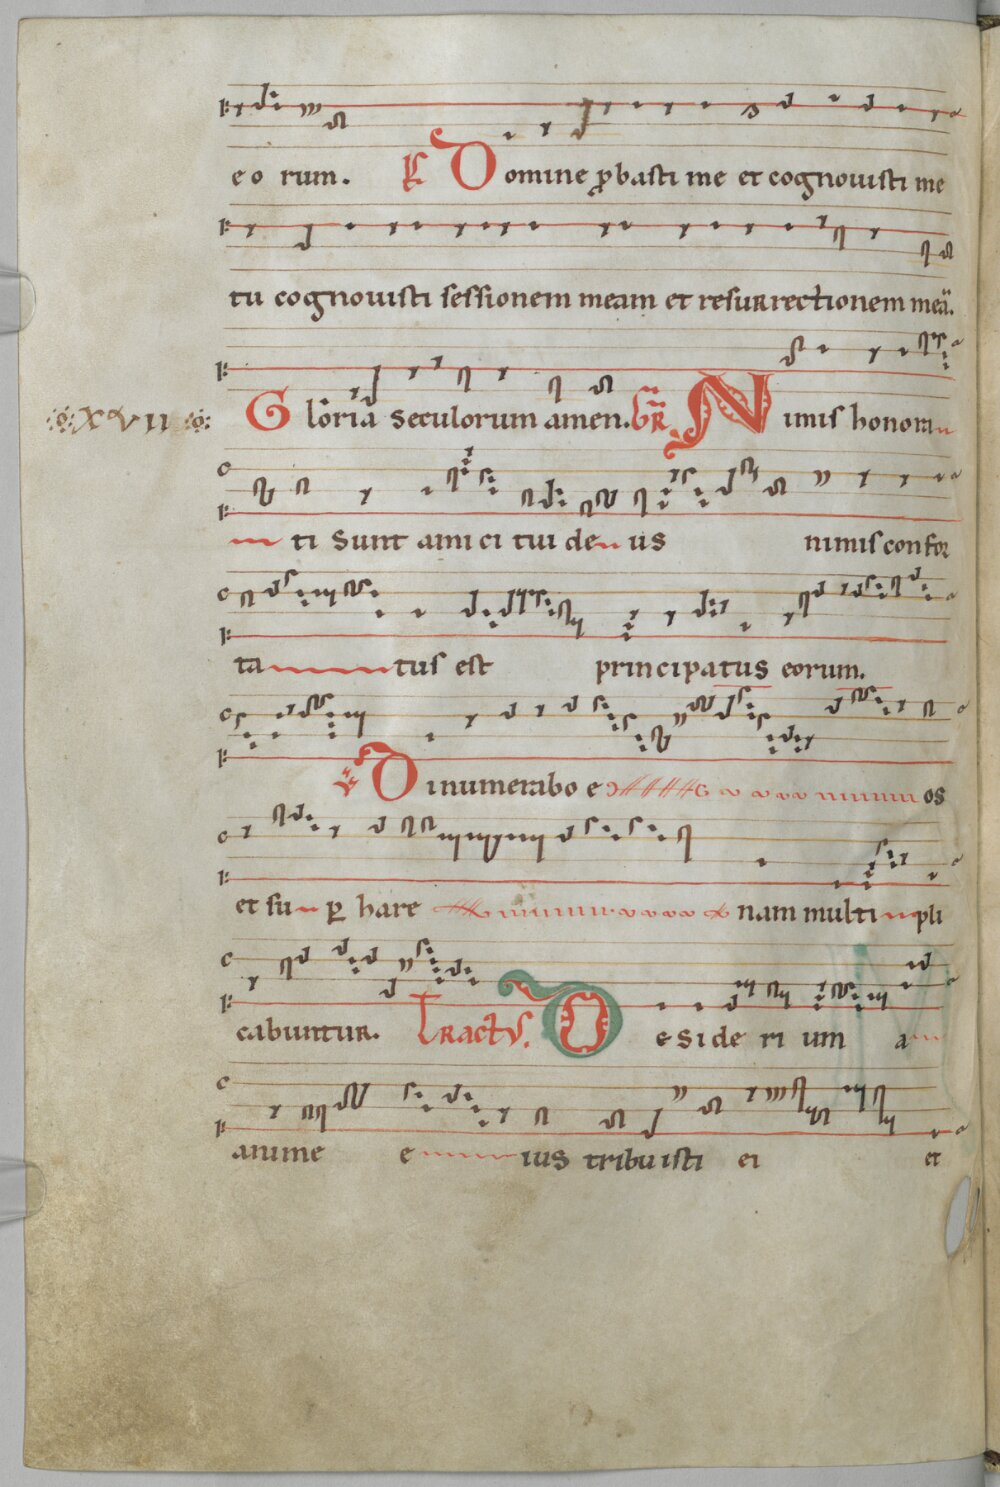 eo rum. Ps Domine ꝓbasti me et cognouisti me
tu cognouisti sessionem meam et resurrectionem meā.
XVII Gloria seculorum amen. GR Nimis honora
ti sunt amici tui deus nimis confor
tatus est principatus eorum.
V Dinumerabo eos
et suꝑ hare nam multipli
cabuntur. Tractus. Desiderium a
anime eius tribuisti ei et